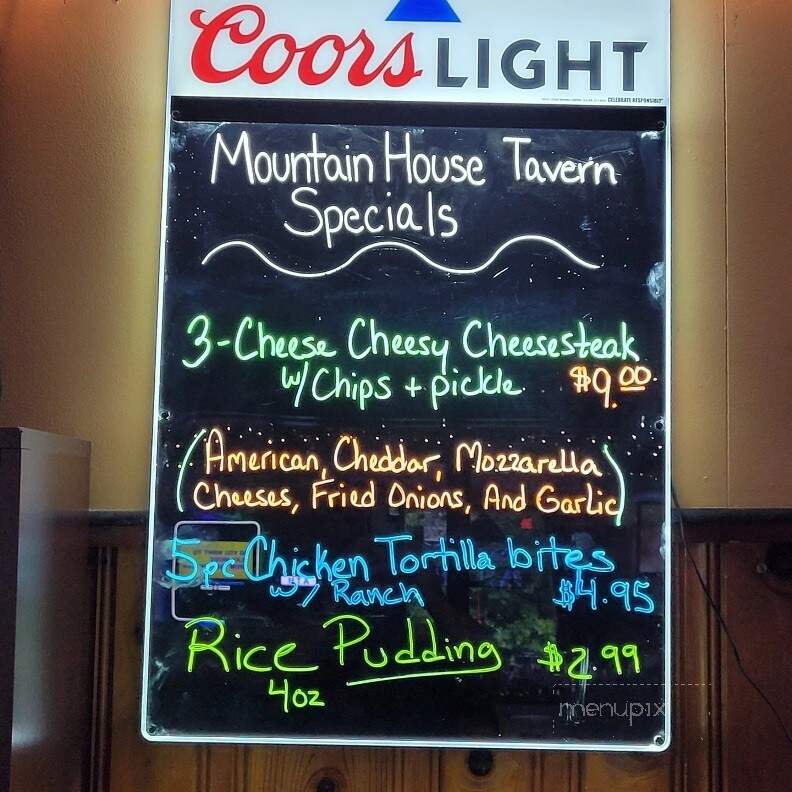 Coors LIGHT
CELEBRATE RESPONSIBLY
Mountain House Tavern
Specials
3-Cheese Cheesy Cheesesteak
w/ Chips + pickle $9.00
(American, Cheddar, Mozzarella
Cheeses, Fried Onions, And Garlic)
5pc Chicken Tortilla bites
w/ Ranch $4.95
Rice Pudding $2.99
4oz
menupix